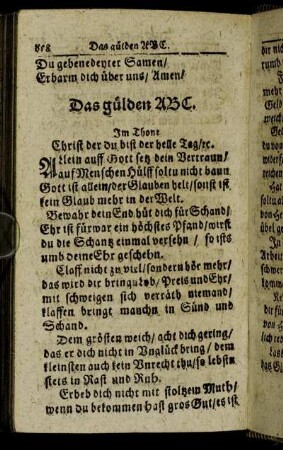 858 Das gülden ABC.
Du gebenedeyter Samen/
Erbarm dich über uns/ Amen/
Das gülden ABC.
Im Thone
Christ der du bist der helle Tag/ꝛc.
Allein auff Gott setz dein Vertraun/
auf Menschen Hülff solt u nicht baun
Gott ist allein/der Glauben helt/sonst ist
kein Glaub mehr in der Welt.
Bewahr dein End hüt dich für Schand/
Ehr ist fürwar ein höchstes Pfand/wirst
du die Schantz einmal versehn / so ists
umb deine Ehr geschehn.
Claff nicht zu viel/sondern hör mehr/
das wird dir bringn Lob/Preis und Ehr/
mit schweigen sich verräth niemand/
klaffen bringt manchn in Sünd und
Schand.
Dem grösten weich/acht dich gering/
das er dich nicht in Unglück bring/dem
kleinsten auch kein Unrecht thu/so lebstu
stets in Rast und Ruh.
Erheb dich nicht mit stoltzem Muth/
wenn du bekommen hast gros Gut/es ist